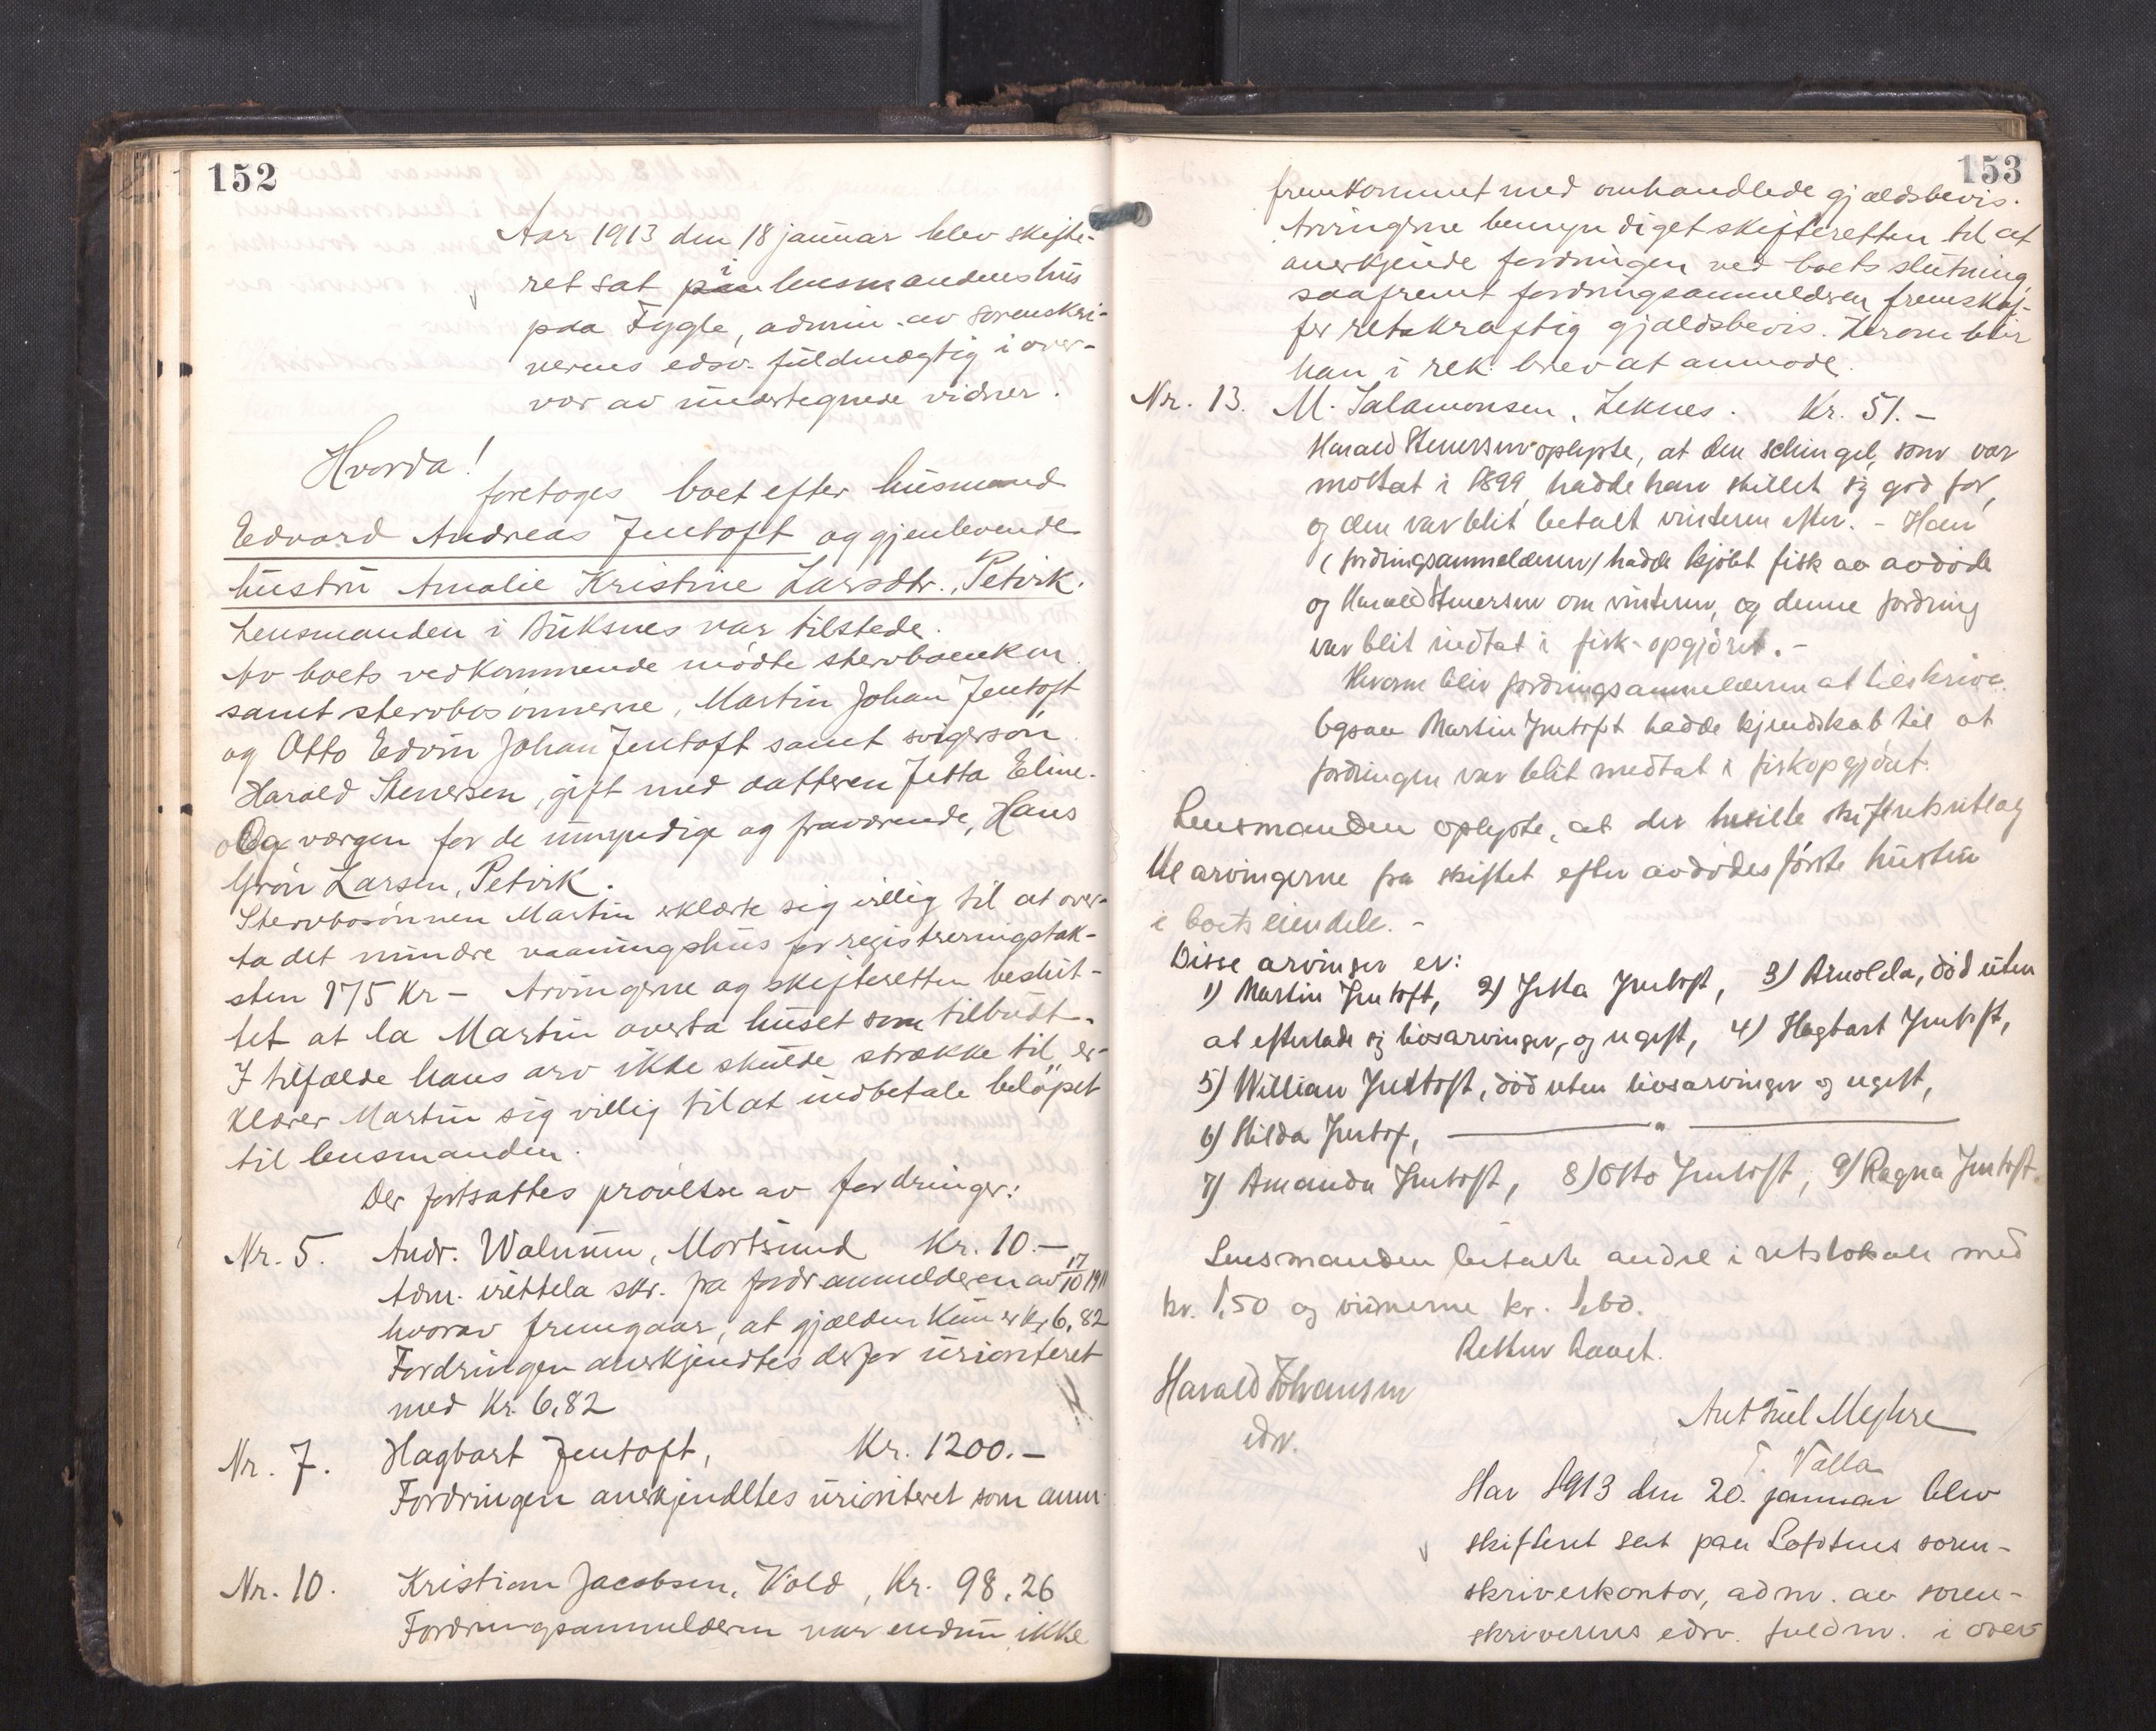 152
Aar 1913 den 18 januar blev skifte-
ret sat i lensmandens hus
paa Fygle, admin. av sorenskri-
verens edsv. fuldmægtig i over-
vær av undertegnede vidner.
Hvorda!
foretoges boet efter husmand
Edvard Andreas Jentoft og gjenlevende
hustru Amalie Kristine Larsdtr., Petvik.
Lensmanden i Buksnes var tilstede.
Av boets vedkommende mødte stervboenken
samt stervbosønnerne, Martin Johan Jentoft
og Otto Edvin Johan Jentoft samt svigersøn
Harald Stenersen, gift med datteren Jetta Eline.
Og værgen for de umyndige og fraværende, Hans
Grøn Larsen, Petvik.
Stervbosønnen Martin erklærte sig villig til at over-
ta det mindre vaaningshus for registreringstak-
sten 175 Kr - Arvingerne og skifteretten beslut-
tet at la Martin overta huset som tilbudt.
I tilfælde hans arv ikke skulde strække til, er-
klærer Martin sig villig til at indbetale beløpet
til lensmanden.
Der fortsattes prøvelse av fordringer:
Nr. 5. Andr. Walnum, Mortsund Kr. 10.-
Adm. irettela skr. fra fordr anmelderen av 17/10 1911
hvorav fremgaar, at gjælden kun er kr 6,82
Fordringen anerkjendtes derfor uprioriteret
med Kr. 6,82
Nr. 7. Hagbart Jentoft, Kr. 1200.-
Fordringen anerkjendtes uprioriteret som anm.
Nr. 10. Kristian Jacobsen, Vold, Kr. 98,26
Fordringsanmelderen var endnu ikke
153
fremkommet med omhandlede gjældsbevis.
Arvingerne bemyndiget skifteretten til at
anerkjende fordringen ved boets slutning,
saafremt fordringsanmelderen fremskaf-
fer retskraftig gjældsbevis. Herom blir
han i rek. brev at anmode.
Nr. 13. M. Salamonsen, Leknes. Kr. 51.-
Harald Stenersen oplyste, at den schingel, som var
mottat i 1899, hadde han skillet sig god for,
og den var blit betalt vinteren efter. - Han
(fordringsanmelderen) hadde kjøbt fisk av avdøde
og Harald Stenersen om vinteren, og denne fordring
var blit indtat i fisk-opgjøret. -
Herom bliv fordringsanmelderen at tilskrive.
Ogsaa Martin Jentoft hadde kjendskab til at
fordringen var blit medtat i fiskopgjøret.
Lensmanden oplyste, at der heilte skifteretsutlag
til arvingerne fra skiftet efter avdødes første hustru
i boets eiendele. -
Disse arvinger er:
1) Martin Jentoft, 2) Jetta Jentoft, 3) Arnolda, død uten
at efterlade sig livsarvinger, og ugift, 4) Hagbart Jentoft,
5) William Jentoft, død uten livsarvinger og ugift,
6) Hilda Jentof, ——— " ———
7) Amanda Jentoft, 8) Otto Jentoft, 9) Ragna Jentoft.
Lensmanden betalte andel i retslokale med
kr. 1,50 og vidnerne kr. 1,60.
Retten hævet.
Harald Johansen
edsv.
T. Valla
Aar 1913 den 20. januar blev
skifteret sat paa Lofotens soren-
skriverkontor, adm. av soren-
skriverens edsv. fuldm. i over